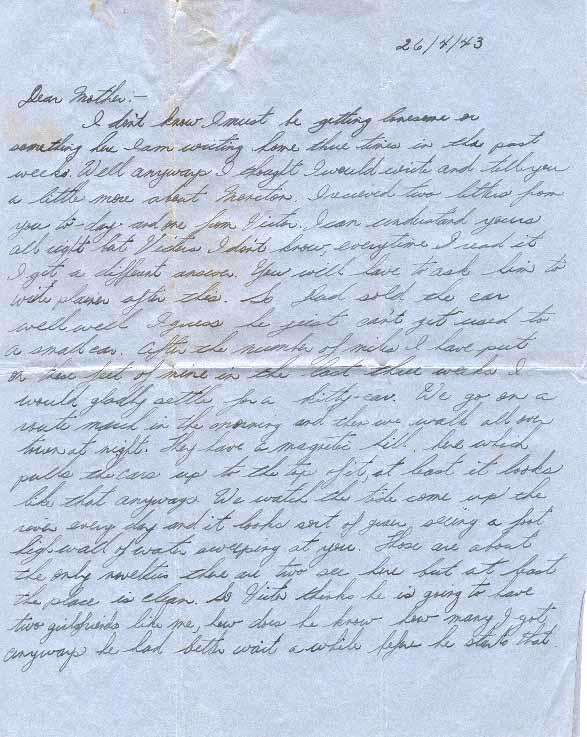 26/4/43
Dear Mother:-
I don't know I must be getting lonesome or
something here I am writing home three times in the past
weeks. Well anyways I thought I would write and tell you
a little more about Moncton. I recieved two letters from
you to-day and one from Victor. I can understand yours
all right but Victors I don't know everytime I read it
I get a different answer. You will have to ask him to
write plainer after this. So Dad sold the car
well well I guess he just can't get used to
a small car. After the number of miles I have put
on these feet of mine in the last three weeks I
would gladly settle for a kitty-car. We go on a
route march in the morning and then we walk all over
town at night. They have a magnetic hill here which
pulls the cars up to the top of it, at least it looks
like that anyways. We watch the tide come up the
river every day and it looks sort of queer seeing a foot
high wall of water sweeping at you. Those are about
the only novelties there are two see here but at least
the place is clean. So Victor thinks he is going to have
two girlfriends like me, how does he know how many I got,
anyways he had better wait a while before he starts that.